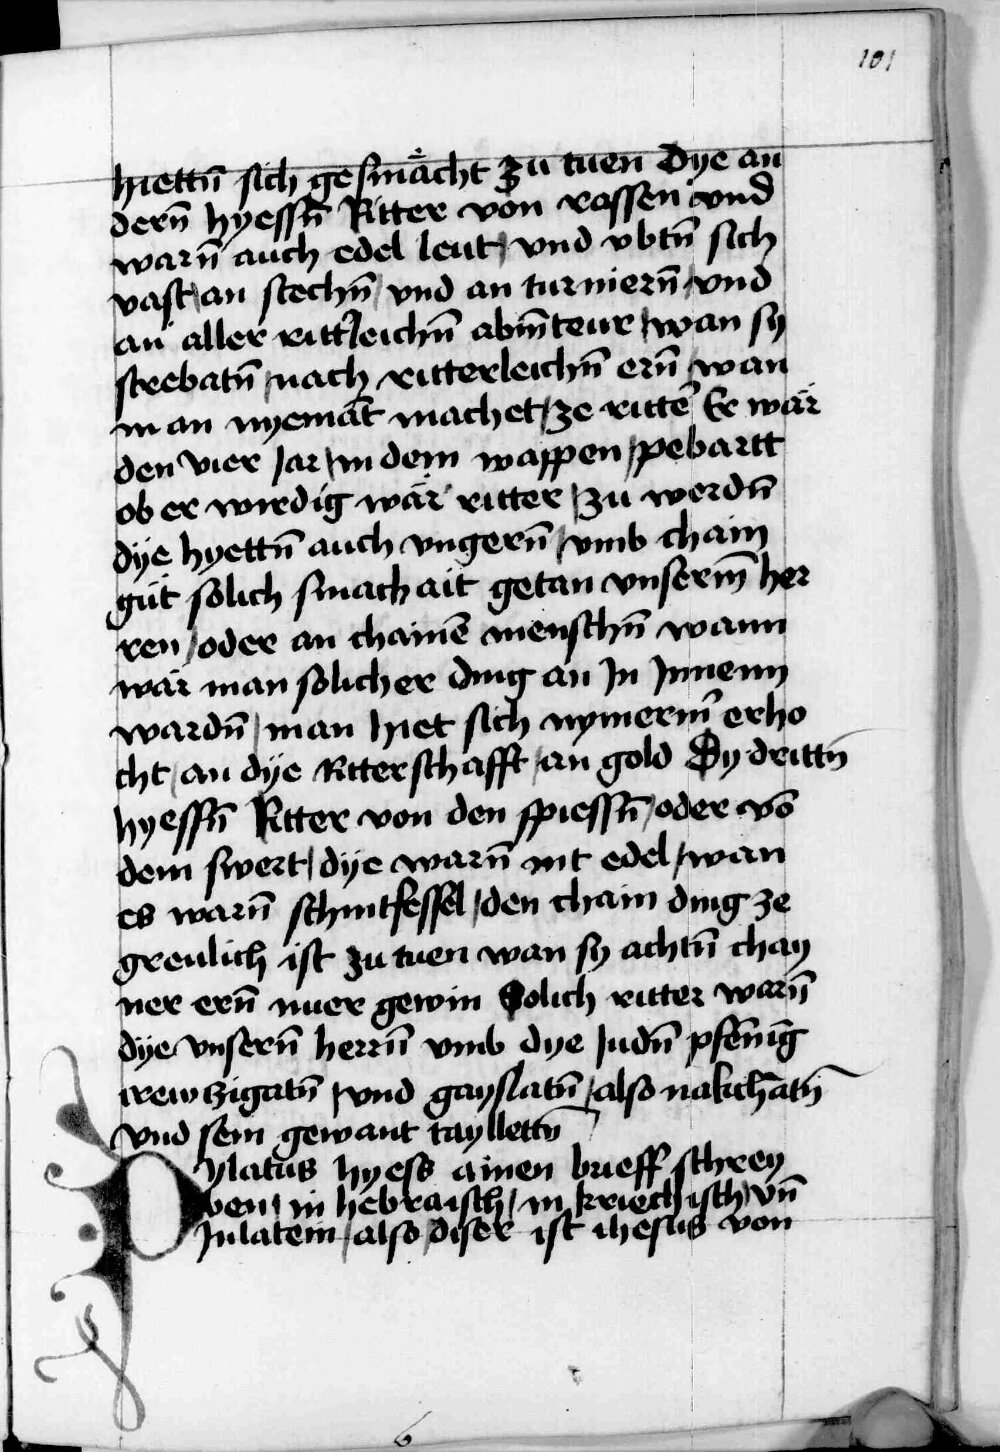 101
hiettn̄ sich gesmächt zu tuen Dye an
dern̄ hyessn̄ Ritter von rossen vnd
warn̄ auch edel leut / vnd vbtn̄ sich
vast / an stechn̄ / vnd an turniern̄ / vnd
an aller ritt̓leichn̄ abn̄teur / wan sy
strebatn̄ / nach ritterleichn̄ ern̄ / wan
man nyemāt machet / ze ritte᷑ Er wär
den vier Jar / in dem wappen / pebartt
ob er wirdig wär ritter / zu werdn̄
dye hyettn̄ auch vngern̄ / vmb chain
güt solich smachait getan vnserm̄ her
ren / oder an chainē menschn̄ wann
wär man solicher ding an In Innenn
wardn̄ / man hiet sich nymerm̓ erho
cht / an dye Ritterschafft / an gold Dy drittn̄
hyessn̄ Ritter von den spiessn̄ / oder vō
dem swert / dye warn̄ nit edel / wan
es warn̄ schintfessel / den chain ding ze
greulich ist zu tuen wan sy achtn̄ chay
ner ern̄ nuer gewin Solich ritter warn̄
dye vnsern̄ herrn̄ vmb dye Judn̄ pfēnig
crewtzigatn̄ / vnd gayslatn̄ / also nakchātn̄
vnd sein gewant taylletn̄
Pylatus hyess ainen brieff schrey
ben / in hebraisch / in kriechisch / vn̄
In latein / also / diser ist ihesus von
6